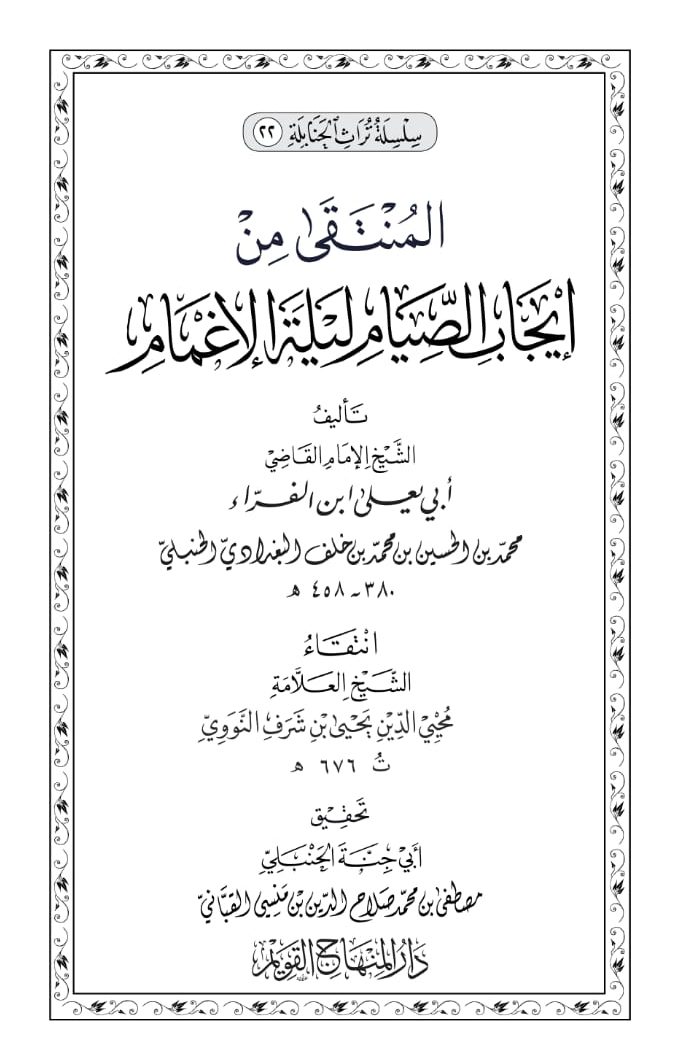 سِلْسِلَةُ تُرَاثِ الْحَنَابِلَةِ ٢٢
المُنْتَقَىٰ مِنْ
إيْجَابِ الصِّيَامِ لَيْلَةَ الإِغْمَامِ
تَأليفُ
الشَّيْخِ الإِمَامِ القَاضِيْ
أبي يعلىٰ ابن الفرّاء
محمّد بن الحسين بن محمّد بن خلف البغداديّ الحنبليّ
٣٨٠ - ٤٥٨ هـ
انْتقَاءُ
الشَّيْخِ العَلَّامَةِ
مُحْيِي الدِّيْنِ يَحْيَىٰ بْنِ شَرَفٍ النَّوَوِيِّ
تُ ٦٧٦ هـ
تَحْقِيْق
أَبِيْ جِنَّةَ الحَنْبَلِيِّ
مصطفىٰ بن محمّد صلاح الدّين بن منسي القبّانيّ
دَارُ المِنْهَاجِ القَوِيْمِ